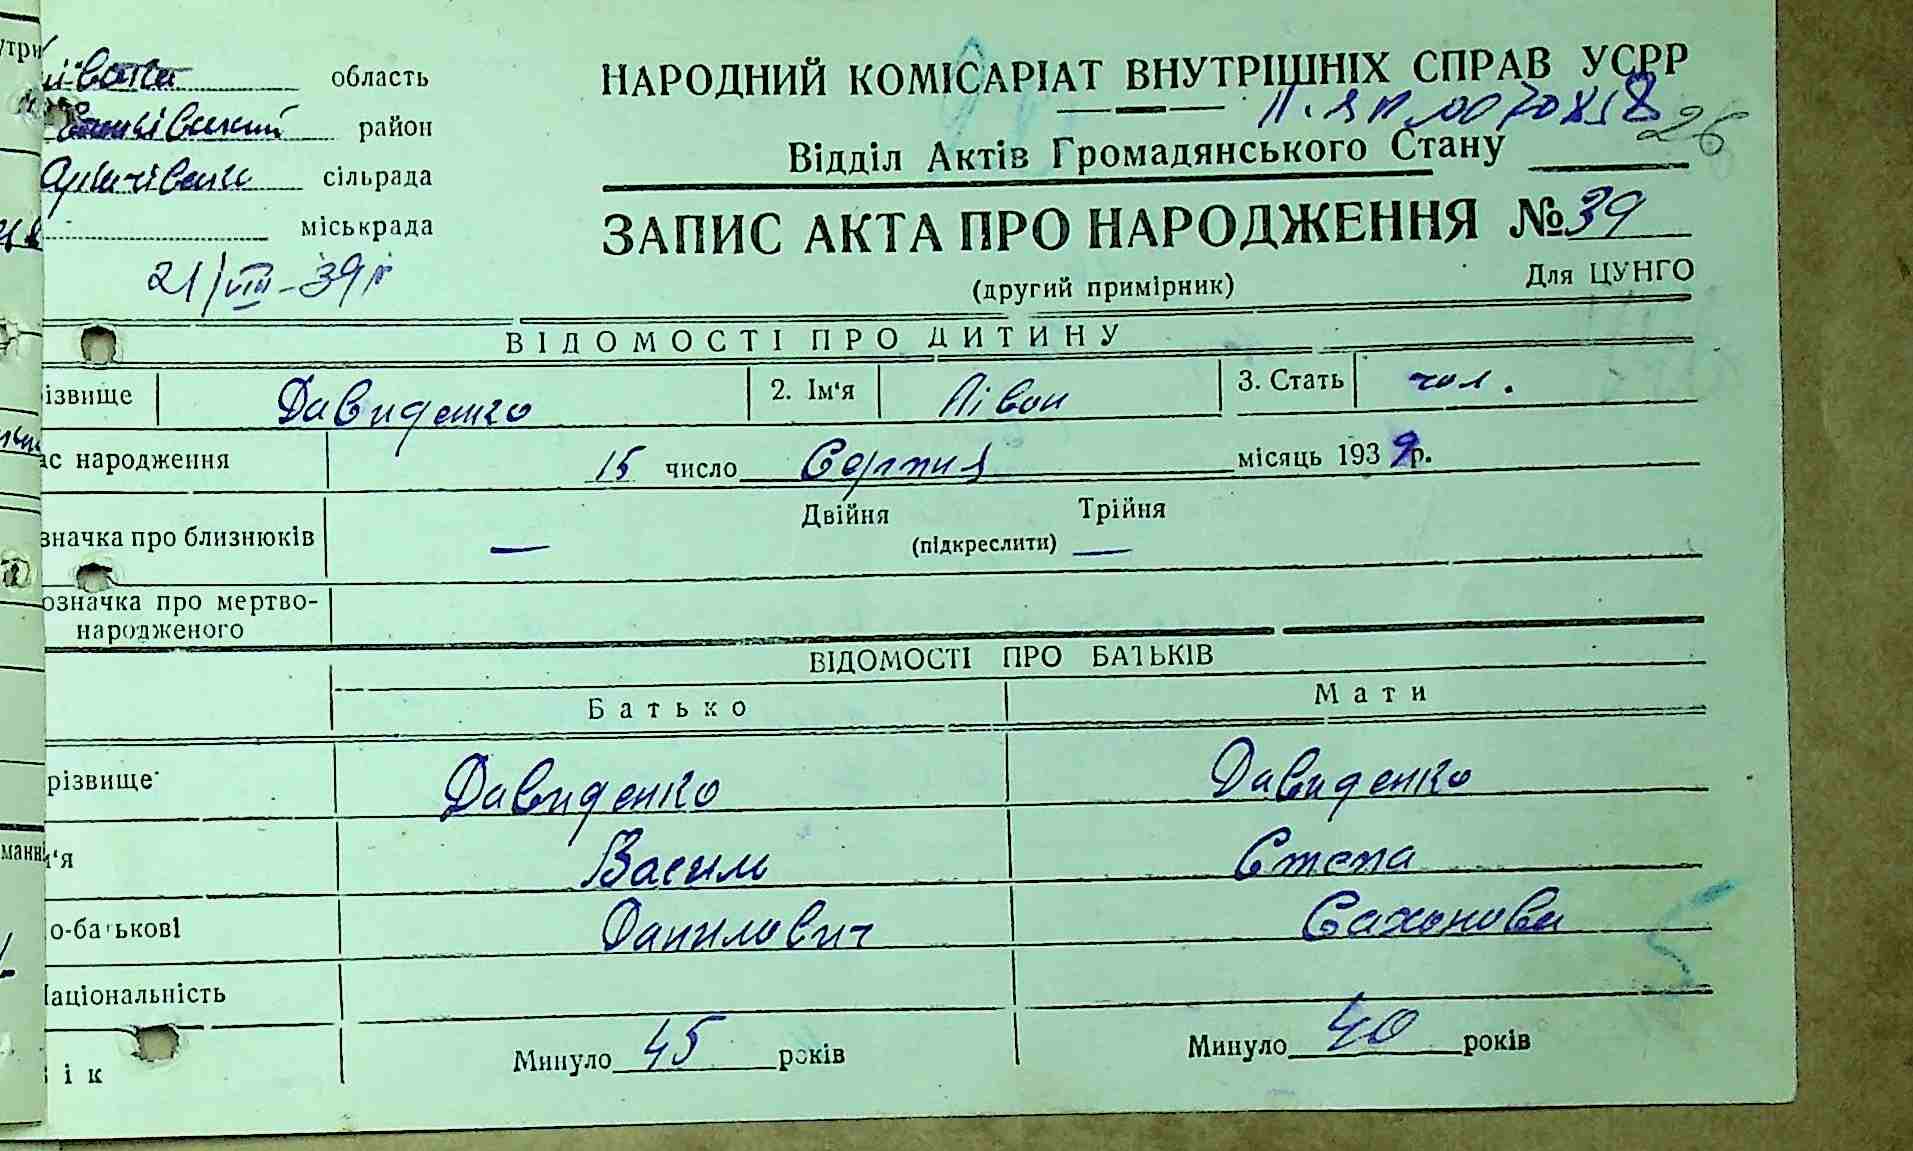 область
район
сільрада
міськрада
21/VIII-39р
НАРОДНИЙ КОМІСАРІАТ ВНУТРІШНІХ СПРАВ УСРР
26
Відділ Актів Громадянського Стану
ЗАПИС АКТА ПРО НАРОДЖЕННЯ № 39
(другий примірник) Для ЦУНГО
ВІДОМОСТІ ПРО ДИТИНУ
ізвище Давиденко 2. Ім'я Лівон 3. Стать чол.
ас народження 15 число Серпня місяць 1939р.
значка про близнюків — Двійня Трійня
(підкреслити) —
означка про мертво-
народженого
ВІДОМОСТІ ПРО БАТЬКІВ
Батько Мати
різвище Давиденко Давиденко
м'я Василь Степа
о-батькові Данилович
Національність
ік Минуло 45 років Минуло 40 років